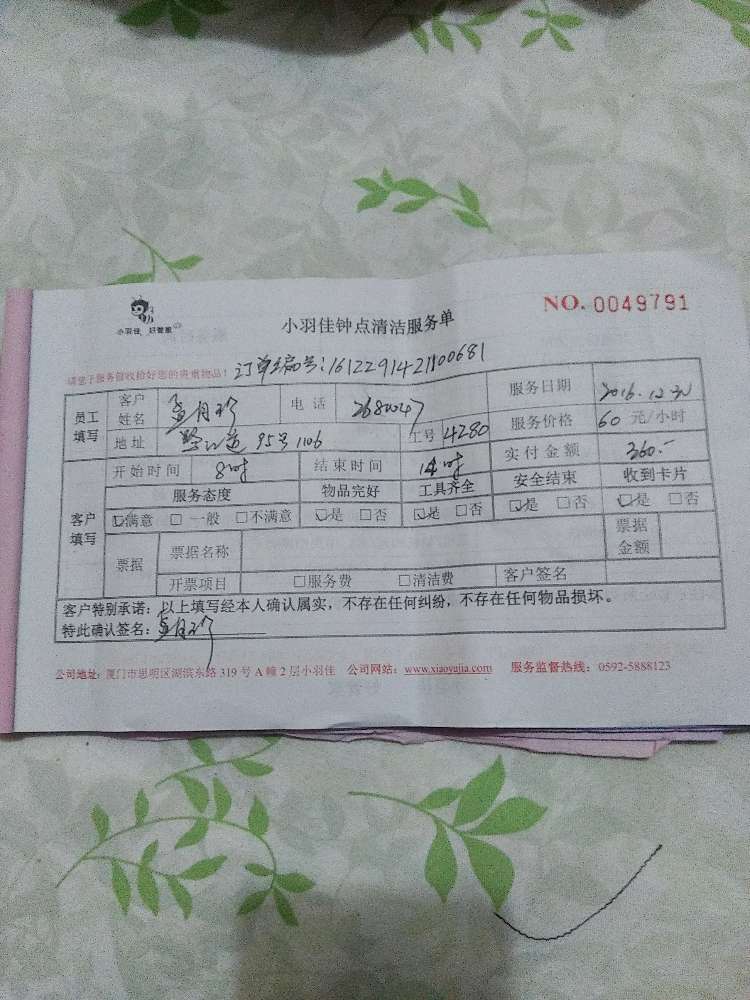 小羽佳 好管家
NO. 0049791
小羽佳钟点清洁服务单
请您于服务前收拾好您的贵重物品!
订单编号:1612291421100681
员工填写 客户姓名 月珍 电话 2680047 服务日期 2016.12.30
地址 95号1106 工号 4280 服务价格 60 元/小时
客户填写 开始时间 8时 结束时间 14时 实付金额 360.-
服务态度 物品完好 工具齐全 安全结束 收到卡片
☑满意 □一般 □不满意 ☑是 □否 ☑是 □否 ☑是 □否 ☑是 □否
票据 票据名称 票据金额
开票项目 □服务费 □清洁费 客户签名
客户特别承诺:以上填写经本人确认属实,不存在任何纠纷,不存在任何物品损坏。
特此确认签名:月珍
公司地址:厦门市思明区湖滨东路 319 号 A 幢 2 层小羽佳 公司网站:www.xiaoyujia.com 服务监督热线:0592-5888123